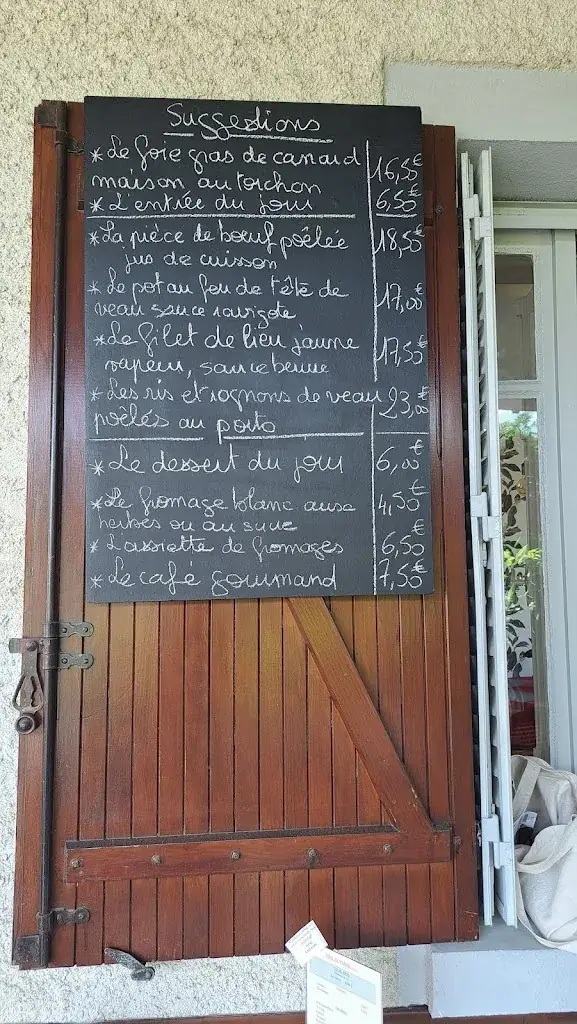 Suggestions
* Le foie gras de canard 16,50€
maison au torchon
* L'entrée du jour 6,50€
* La pièce de bœuf poêlée 18,50€
jus de cuisson
* Le pot au feu de tête de
veau sauce ravigote 17,00€
* Le filet de lieu jaune
vapeur, sauce beurre 17,50€
* Les ris et rognons de veau 23,00€
poêlés au porto
* Le dessert du jour 6,00€
* Le fromage blanc aux 4,50€
herbes ou au sucre
* L'assiette de fromages 6,50€
* Le café gourmand 7,50€